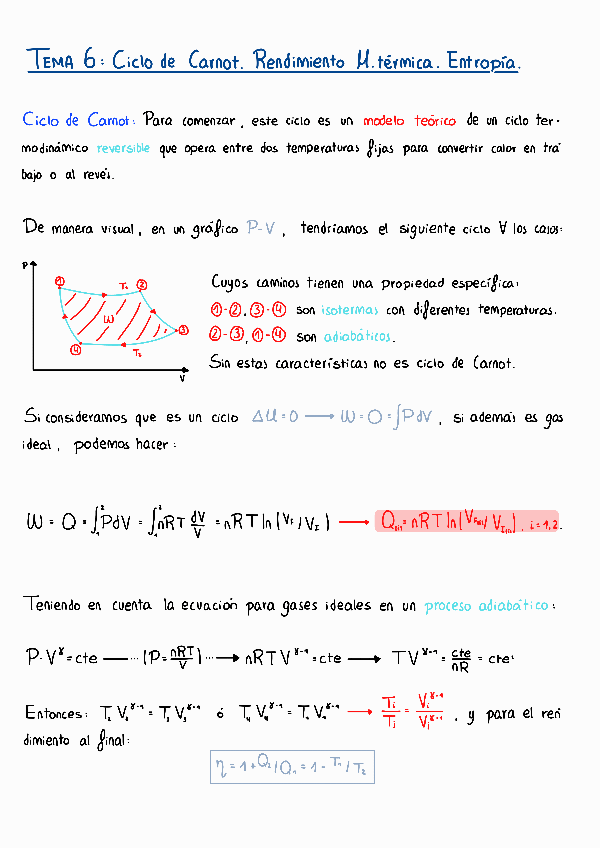 TEMA 6: Ciclo de Carnot. Rendimiento M.térmica. Entropía.
Ciclo de Carnot: Para comenzar, este ciclo es un modelo teórico de un ciclo ter-
modinámico reversible que opera entre dos temperaturas fijas para convertir calor en tra
bajo o al revés.
De manera visual, en un gráfico P-V, tendríamos el siguiente ciclo ∀ los casos:
P
① T₂ ②
W
③
④ T₁
V
Cuyos caminos tienen una propiedad específica:
①-②, ③-④ son isotermas con diferentes temperaturas.
②-③, ①-④ son adiabáticos.
Sin estas características no es ciclo de Carnot.
Si consideramos que es un ciclo ΔU=0 → W=Q=∫PdV, si además es gas
ideal, podemos hacer:
W = Q = ∫₁²PdV = ∫₁²nRT dV/V = nRT ln(V_F/V_I) →
Teniendo en cuenta la ecuación para gases ideales en un proceso adiabático:
P·V^γ=cte → (P=nRT/V) → nRTV^γ-1=cte → TV^γ-1=cte/nR = cte'
Entonces: ó → , y para el ren
dimiento al final:
η = 1+Q₂/Q₁ = 1-T₁/T₂